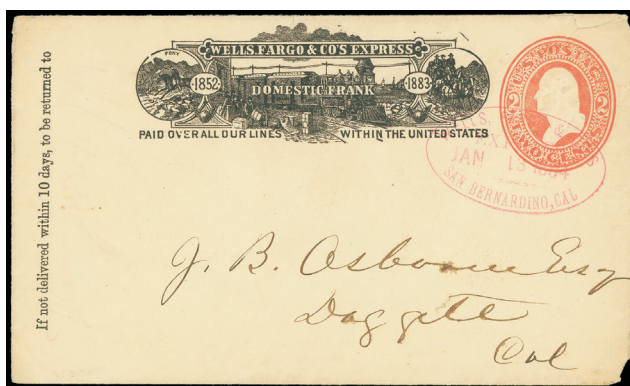 If not delivered within 10 days, to be returned to
PONY
WELLS, FARGO & CO'S EXPRESS
1852 DOMESTIC FRANK 1883
PAID OVER ALL OUR LINES WITHIN THE UNITED STATES
U.S. POSTAGE
2 2
TWO CENTS
JAN 13 1884
SAN BERNARDINO, CAL
J. B. Osborne Esq
Daggett
Cal